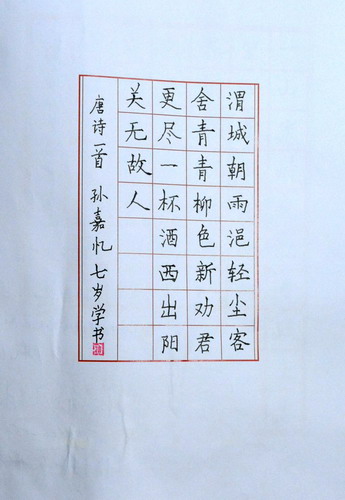 渭城朝雨浥轻尘客
舍青青柳色新劝君
更尽一杯酒西出阳
关无故人
唐诗一首 孙嘉忆 七岁学书